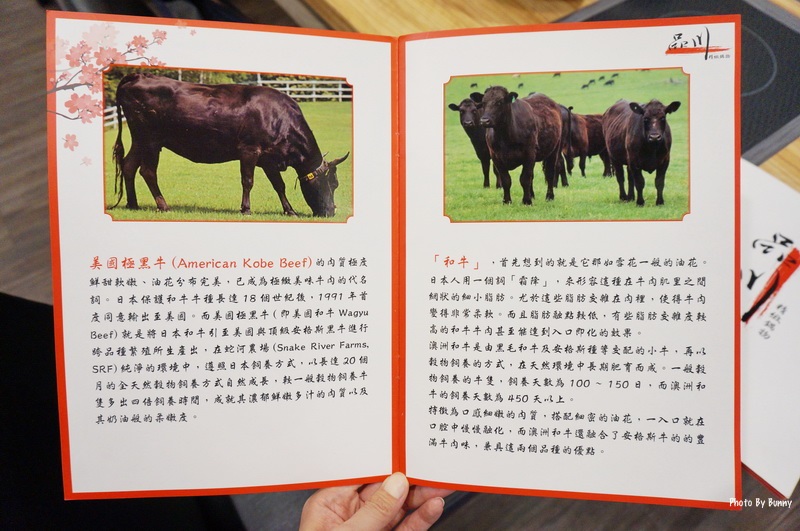 美國極黑牛 (American Kobe Beef) 的肉質極度
鮮甜軟嫩，油花分布完美，已成為極緻美味牛肉的代名
詞。日本保護和牛牛種長達 18 個世紀後，1991 年首
度同意輸出至美國。而美國極黑牛 ( 即美國和牛 Wagyu
Beef) 就是將日本和牛引至美國與頂級安格斯黑牛進行
跨品種繁殖所生產出，在蛇河農場 (Snake River Farms,
SRF) 純淨的環境中，遵照日本飼養方式，以長達 20 個
月的全天然穀物飼養方式自然成長，較一般穀物飼養牛
隻多出四倍飼養時間，成就其濃郁鮮嫩多汁的肉質以及
其奶油般的柔嫩度。
品川
精緻鍋物
「和牛」，首先想到的就是它那如雪花一般的油花。
日本人用一個詞「霜降」，來形容這種在牛肉肌里之間
網狀的細小脂肪。尤於這些脂肪交雜在肉裡，使得牛肉
變得非常柔軟。而且脂肪融點較低，有些脂肪交雜度較
高的和牛牛肉甚至能達到入口即化的效果。
澳洲和牛是由黑毛和牛及安格斯種等交配的小牛，再以
穀物飼養的方式，在天然環境中長期肥育而成。一般穀
物飼養的牛隻，飼養天數為 100 ~ 150 日，而澳洲和
牛的飼養天數為 450 天以上。
特徵為口感細嫩的肉質，搭配細密的油花，一入口就在
口腔中慢慢融化，而澳洲和牛還融合了安格斯牛的的豐
滿牛肉味，兼具這兩個品種的優點。
品川
精緻鍋物
Photo By Bunny